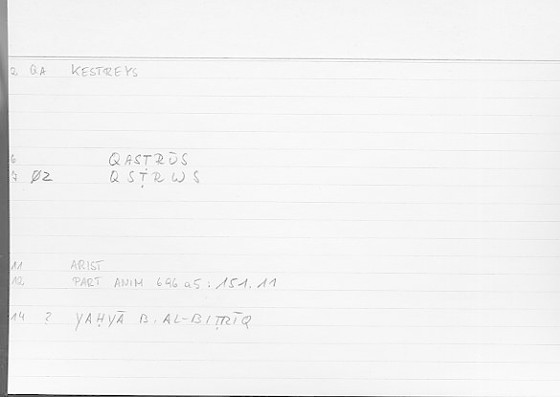 2 GA KESTREYS
6 QASṬRŪS
7 ØZ QSṬRWS
11 ARIST
12 PART ANIM 696a5 : 151.11
14 ? YAḤYĀ B. AL-BIṬRĪQ